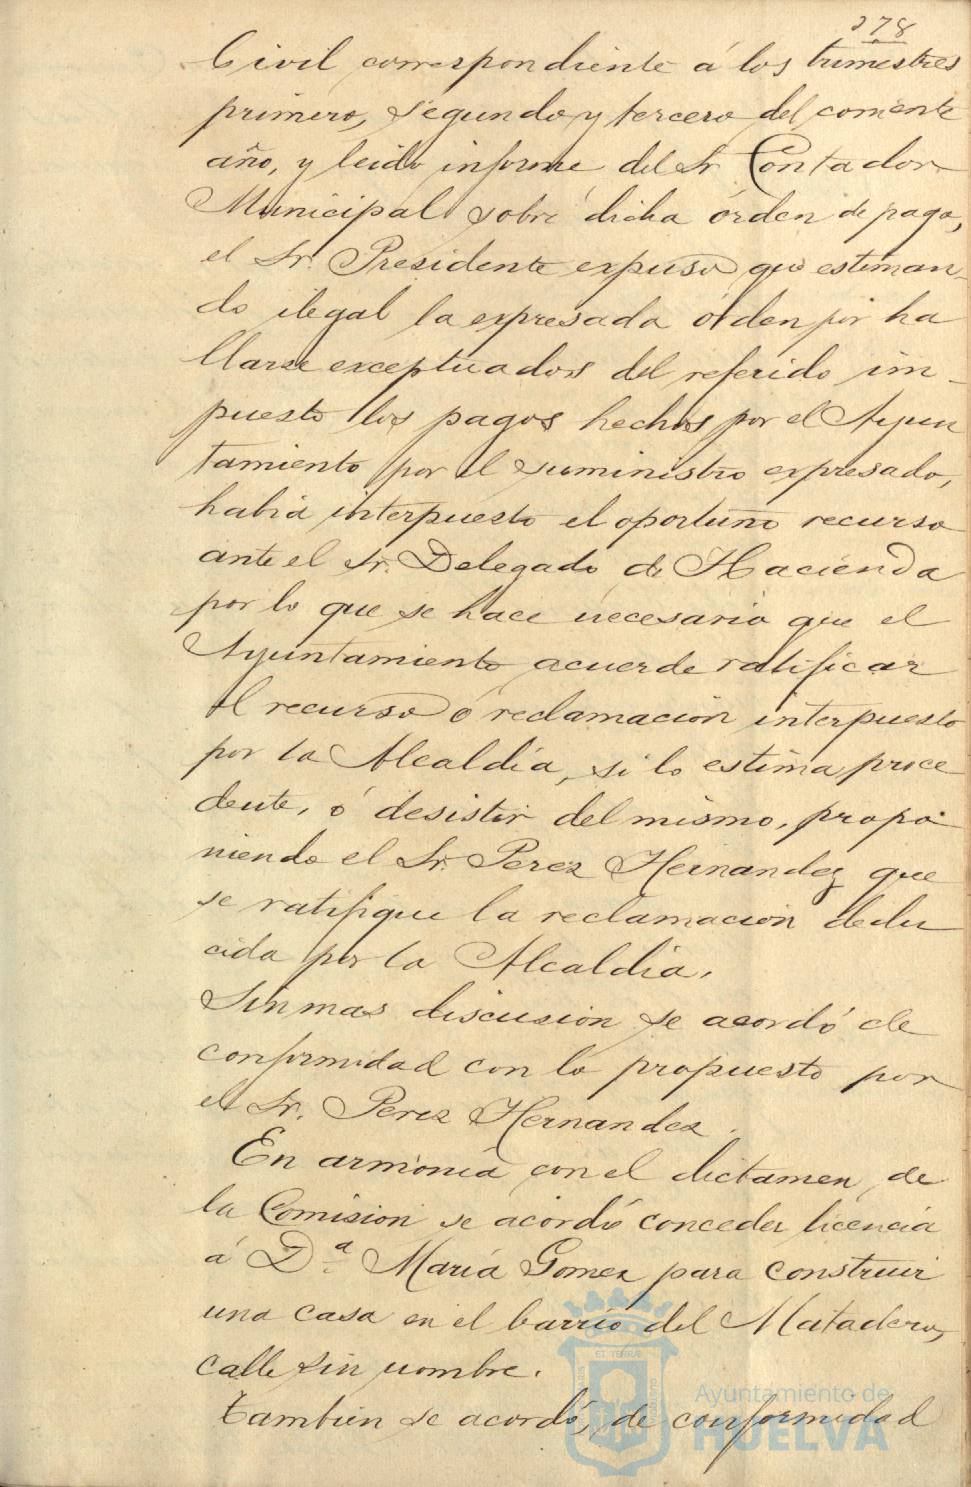 278
Civil correspondiente á los trimestres
primero, segundo y tercero del corriente
año, y leido informe del Sr Contador
Municipal sobre dicha órden de pago,
el Sr. Presidente expuso que estiman-
do ilegal la expresada órden por ha
llarse exceptuados del referido im-
puesto los pagos hechos por el Ayun
tamiento por el suministro expresado,
habia interpuesto el oportuno recurso
ante el Sr. Delegado de Hacienda
por lo que se hace necesario que el
Ayuntamiento acuerde ratificar
el recurso ó reclamacion interpuesto
por la Alcaldía, si lo estima proce
dente, ó desistir del mismo, propo
niendo el Sr. Perez Hernandez que
se ratifique la reclamacion dedu
cida por la Alcaldía.
Sin mas discusion se acordó de
conformidad con lo propuesto por
el Sr. Perez Hernandez.
En armonía con el dictamen de
la Comision se acordó conceder licencia
á D.ª María Gomez para construir
una casa en el barrio del Matadero,
calle sin nombre.
Tambien se acordó, de conformidad
ET TERRÆ
Ayuntamiento de
HUELVA